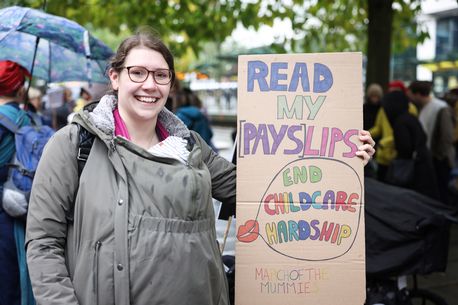 READ
MY
[PAYS]LIPS
END
CHILDCARE
HARDSHIP
MARCH OF THE
MUMMIES